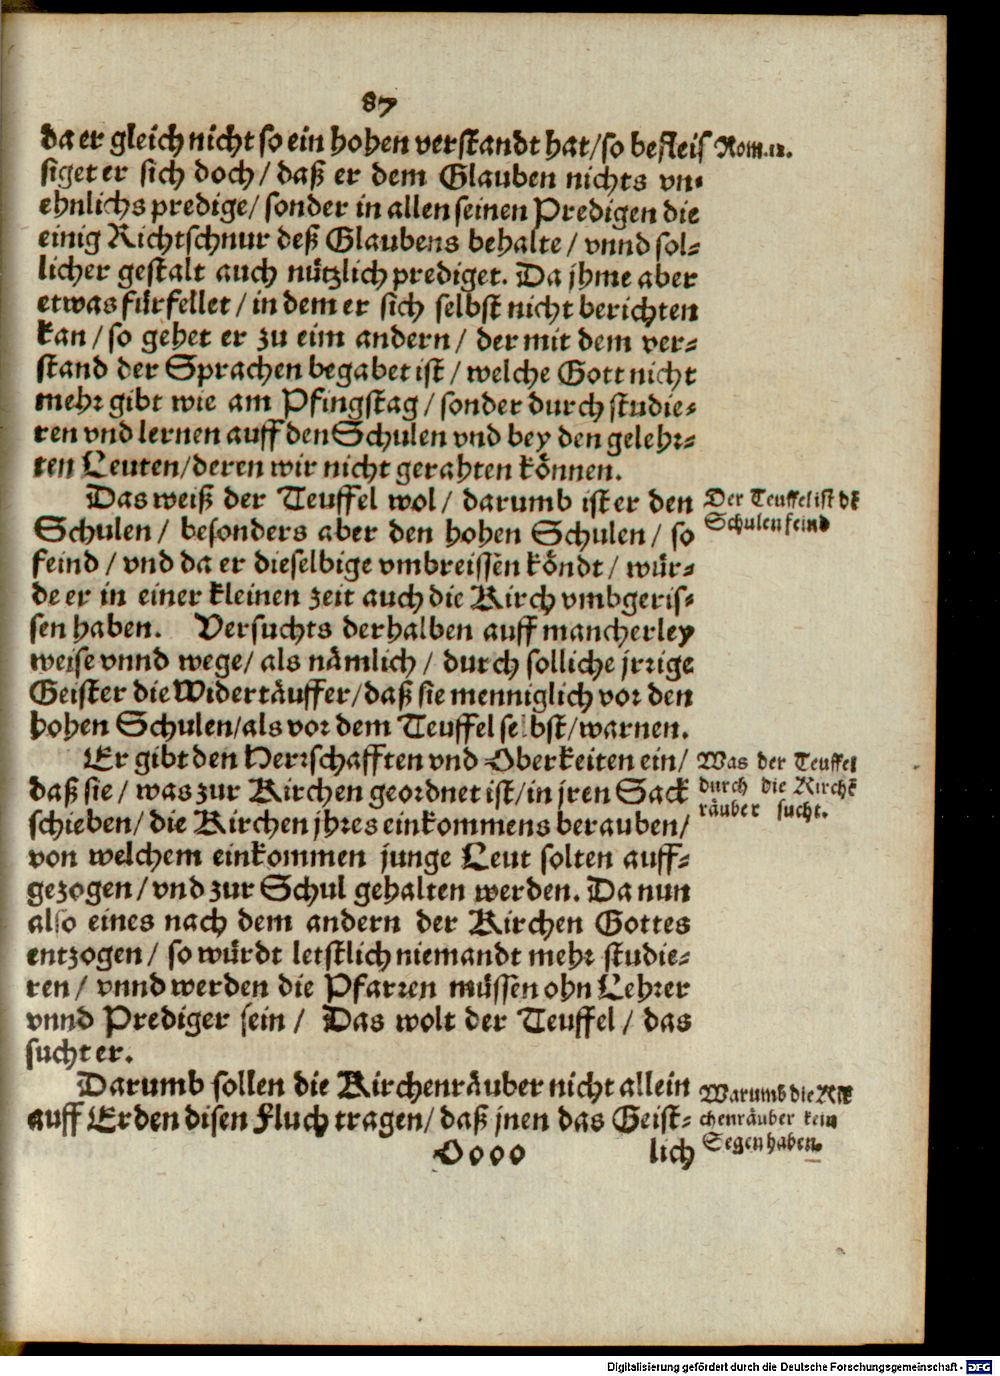 87
da er gleich nicht so ein hohen verstandt hat/ so befleis
Rom. 12.
siget er sich doch/ daß er dem Glauben nichts vn-
ehnlichs predige/ sonder in allen seinen Predigen die
einig Richtschnur deß Glaubens behalte/ vnnd sol-
licher gestalt auch nützlich prediget. Da jhme aber
etwas fürfellet/ in dem er sich selbst nicht berichten
kan/ so gehet er zu eim andern/ der mit dem ver-
stand der Sprachen begabet ist/ welche Gott nicht
mehr gibt wie am Pfingstag/ sonder durch studie-
ren vnd lernen auff den Schulen vnd bey den gelehr-
ten Leuten/ deren wir nicht gerahten können.
Das weiß der Teuffel wol/ darumb ist er den
Schulen/ besonders aber den hohen Schulen/ so
Der Teuffel ist dẽ
Schulen feind
feind/ vnd da er dieselbige vmbreissen köndt/ wür-
de er in einer kleinen zeit auch die Kirch vmbgeris-
sen haben. Versuchts derhalben auff mancherley
weise vnnd wege/ als nämlich/ durch solliche jrrige
Geister die Widertäuffer/ daß sie menniglich vor den
hohen Schulen/ als vor dem Teuffel selbst/ warnen.
Er gibt den Herrschafften vnd Oberkeiten ein/
daß sie/ was zur Kirchen geordnet ist/ in jren Sack
schieben/ die Kirchen jhres einkommens berauben/
Was der Teuffel
durch die Kirchẽ
räuber sucht.
von welchem einkommen junge Leut solten auff-
gezogen/ vnd zur Schul gehalten werden. Da nun
also eines nach dem andern der Kirchen Gottes
entzogen/ so würdt letstlich niemandt mehr studie-
ren/ vnnd werden die Pfarren müssen ohn Lehrer
vnnd Prediger sein/ Das wolt der Teuffel/ das
sucht er.
Darumb sollen die Kirchenräuber nicht allein
auff Erden disen Fluch tragen/ daß jnen das Geist-
Warumb die Kir
chenräuber kein
Segen haben.
Oooo lich
Digitalisierung gefördert durch die Deutsche Forschungsgemeinschaft - DFG